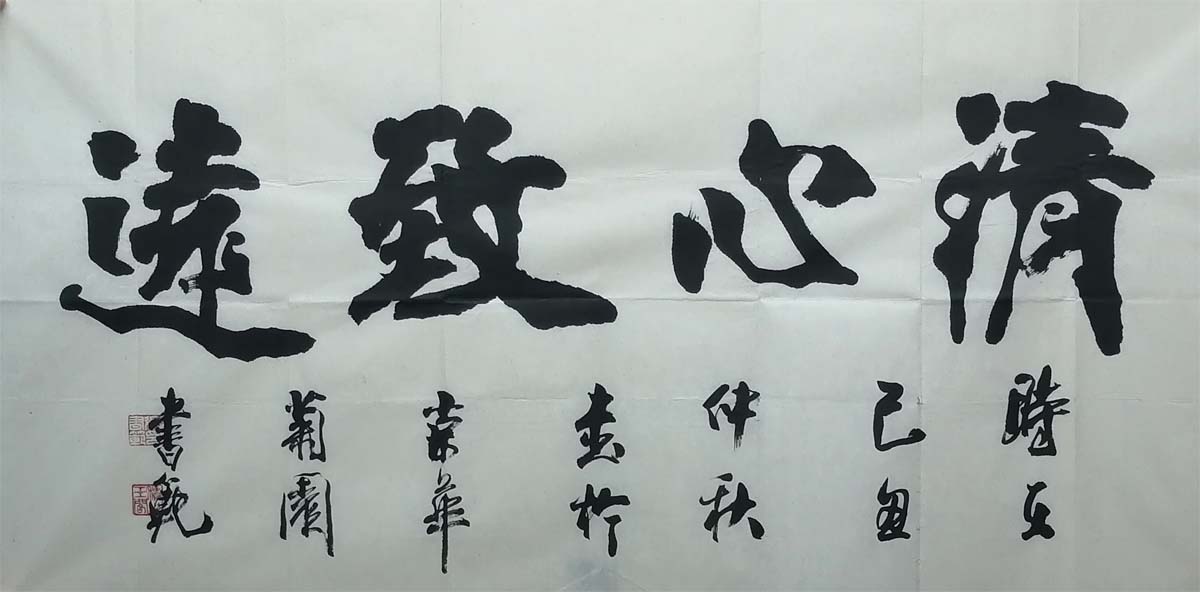 清心致遠
時在
己丑
仲秋
書於
京華
菊園
書範